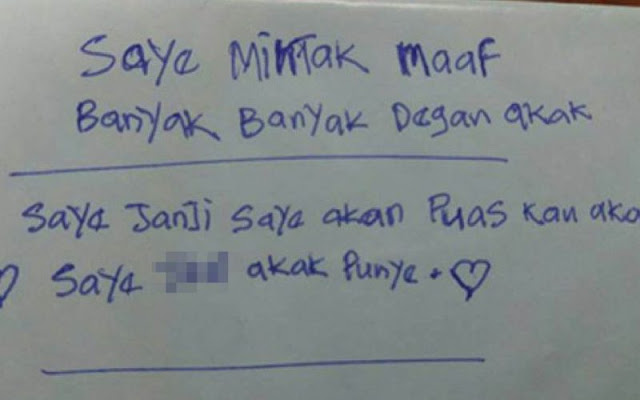 Saye Mintak maaf
Banyak Banyak Degan akak
Saye Janji Saye akan Puas kan aka
Saye akak Punye.